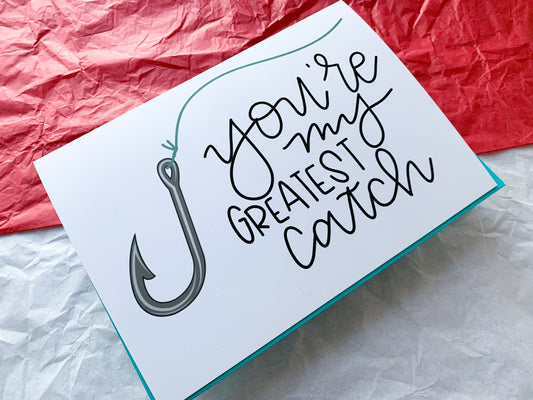 you're
my
GREATEST
catch